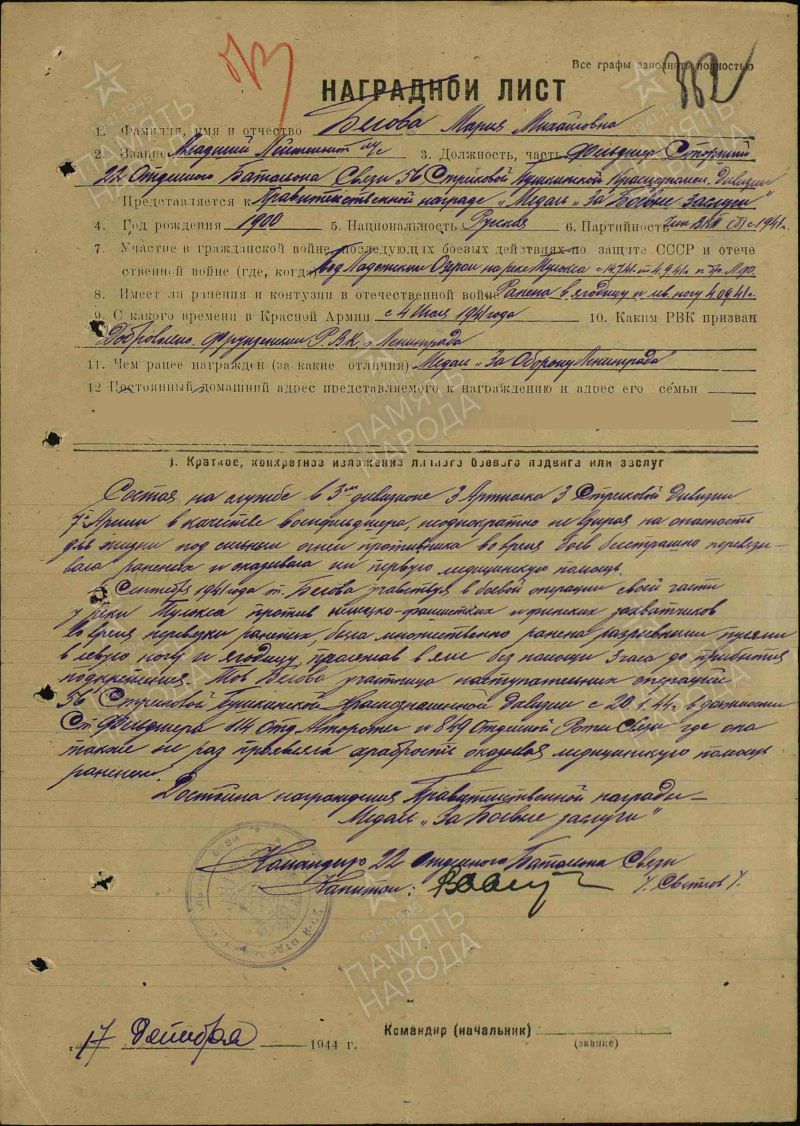 Все графы заполнять полностью
НАГРАДНОЙ ЛИСТ
1. Фамилия, имя и отчество Белова Мария Михайловна
2. Звание Младший Лейтенант м/с 3. Должность, часть Фельдшер Старший
22 Отдельного Батальона Связи 56 Стрелковой Пушкинской Краснознамен. Дивизии
Представляется к Правительственной награде "Медаль "За Боевые заслуги"
4. Год рождения 1900 5. Национальность Русская 6. Партийность Член ВКП (б) с 1941 г.
7. Участие в гражданской войне, последующих боевых действиях по защите СССР и отече
ственной войне (где, когда) под Ладожским Озером на реке Тулокса с 14.7.41 4.9.41 г.
8. Имеет ли ранения и контузии в отечественной войне Ранена в ягодицу и лев. ногу 4.09.41 г.
9. С какого времени в Красной Армии с 4 Июля 1941 года 10. Каким РВК призван
Добровольно. Фрунзенским Р.В.К. г. Ленинграда
11. Чем ранее награжден (за какие отличия) Медаль "За Оборону Ленинграда"
12 Постоянный домашний адрес представляемого к награждению и адрес его семьи
I. Краткое, конкретное изложение личного боевого подвига или заслуг
Состоя на службе в 3ем дивизионе 3 Артполка 3 Стрелковой Дивизии
7й Армии в качестве военфельдшера, неоднократно не взирая на опасность
для жизни под сильным огнем противника во время боев бесстрашно перевязы-
вала раненых и оказывала им первую медицинскую помощь
4 Сентября 1941 года т. Белова участвуя в боевой операции своей части
у реки Тулокса против немецко-фашистских и финских захватчиков
во время перевязки раненых, была множественно ранена разрывными пулями
в левую ногу и ягодицу, пролежав в яме без помощи 3 часа до прибытия
подкрепления. Тов Белова участница наступательных операций
56 Стрелковой Пушкинской Краснознаменной Дивизии с 20.1.44 г. в должности
Ст. Фельдшера 114 Отд. Мотороты и 849 Отдельной Роты Связи где она
также не раз проявляла храбрость оказывая медицинскую помощь
раненым.
Достойна награждения Правительственной награды -
Медаль "За Боевые заслуги"
Командир 22 Отдельного Батальона Связи
Капитан: / Светлов /.
17 1944 г.
Командир (начальник)
(звание)
1941-1945
ПАМЯТЬ
НАРОДА